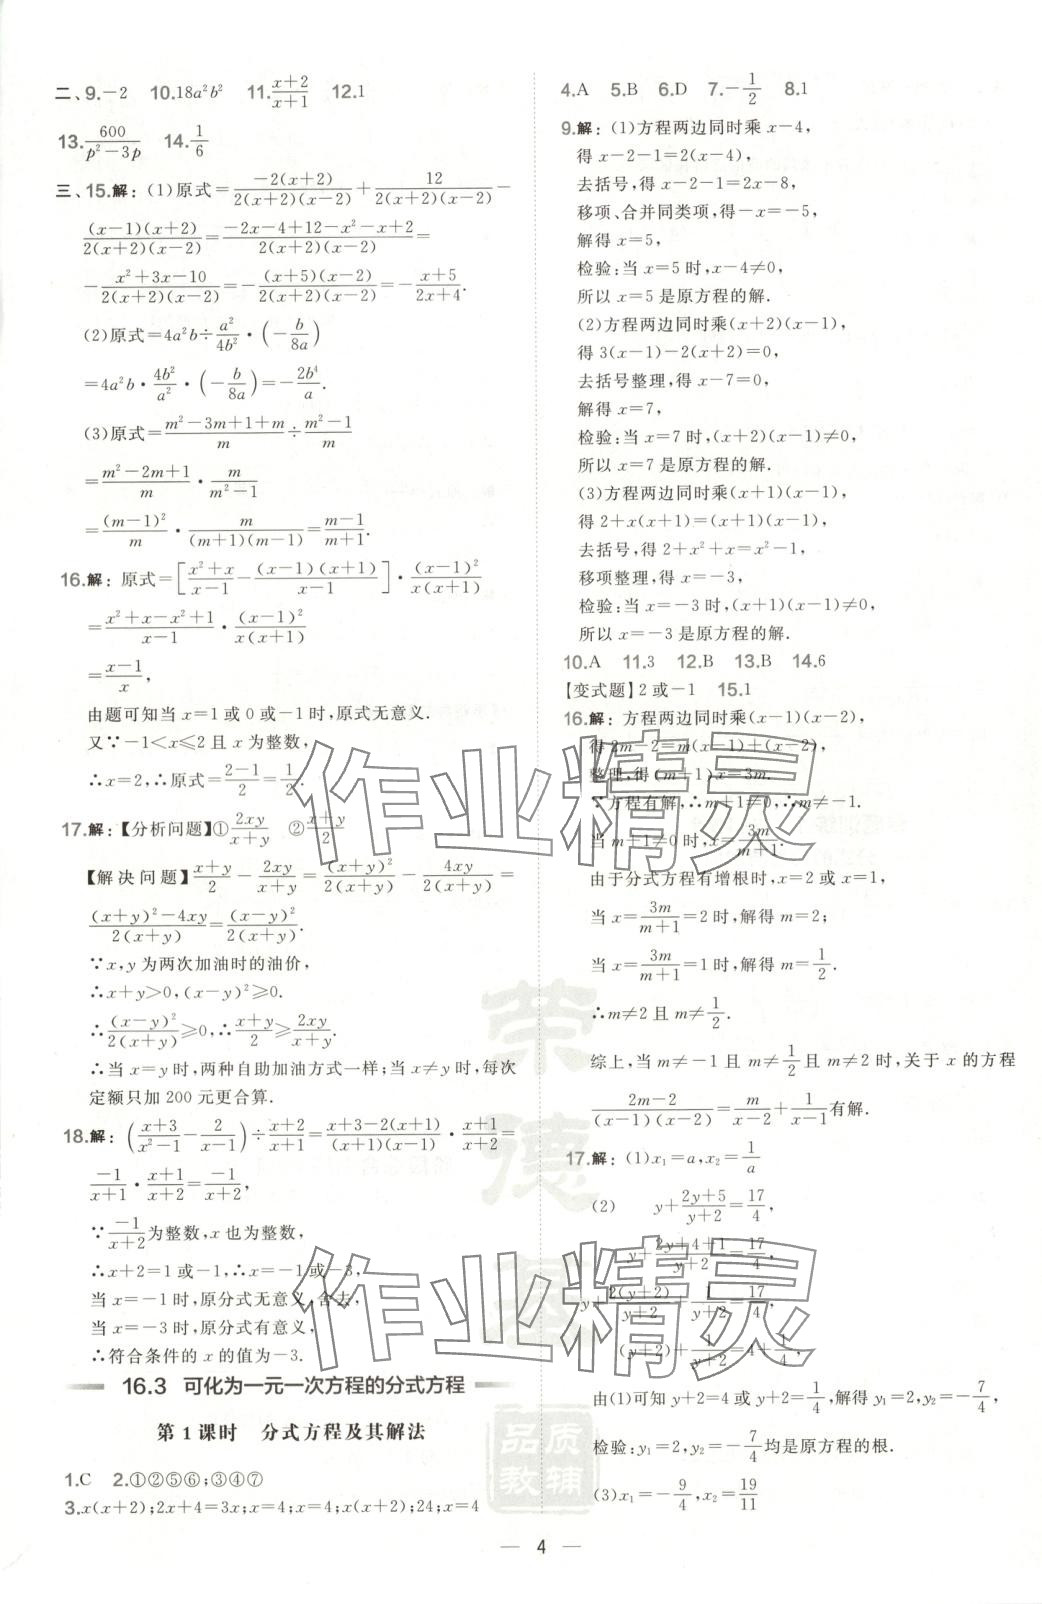 二、9.-2　10.18a²b²　11.\frac{x+2}{x+1}　12.1
13.\frac{600}{p²-3p}　14.\frac{1}{6}
三、15.解：(1)原式=\frac{-2(x+2)}{2(x+2)(x-2)}+\frac{12}{2(x+2)(x-2)}-
\frac{(x-1)(x+2)}{2(x+2)(x-2)}=\frac{-2x-4+12-x²-x+2}{2(x+2)(x-2)}=
-\frac{x²+3x-10}{2(x+2)(x-2)}=-\frac{(x+5)(x-2)}{2(x+2)(x-2)}=-\frac{x+5}{2x+4}.
(2)原式=4a²b÷\frac{a²}{4b²}·(-\frac{b}{8a})
=4a²b·\frac{4b²}{a²}·(-\frac{b}{8a})=-\frac{2b⁴}{a}.
(3)原式=\frac{m²-3m+1+m}{m}÷\frac{m²-1}{m}
=\frac{m²-2m+1}{m}·\frac{m}{m²-1}
=\frac{(m-1)²}{m}·\frac{m}{(m+1)(m-1)}=\frac{m-1}{m+1}.
16.解：原式=[\frac{x²+x}{x-1}-\frac{(x-1)(x+1)}{x-1}]·\frac{(x-1)²}{x(x+1)}
=\frac{x²+x-x²+1}{x-1}·\frac{(x-1)²}{x(x+1)}
=\frac{x-1}{x},
由题可知当 x=1或0或-1时,原式无意义.
又∵-1<x≤2且 x 为整数,
∴x=2,∴原式=\frac{2-1}{2}=\frac{1}{2}.
17.解：【分析问题】①\frac{2xy}{x+y}　②\frac{x+y}{2}
【解决问题】\frac{x+y}{2}-\frac{2xy}{x+y}=\frac{(x+y)²}{2(x+y)}-\frac{4xy}{2(x+y)}=
\frac{(x+y)²-4xy}{2(x+y)}=\frac{(x-y)²}{2(x+y)}.
∵x,y 为两次加油时的油价,
∴x+y>0,(x-y)²≥0.
∴\frac{(x-y)²}{2(x+y)}≥0,∴\frac{x+y}{2}≥\frac{2xy}{x+y}.
∴当 x=y 时,两种自助加油方式一样;当 x≠y 时,每次
定额只加 200 元更合算.
18.解：(\frac{x+3}{x²-1}-\frac{2}{x-1})÷\frac{x+2}{x+1}=\frac{x+3-2(x+1)}{(x+1)(x-1)}·\frac{x+1}{x+2}=
\frac{-1}{x+1}·\frac{x+1}{x+2}=\frac{-1}{x+2},
∵\frac{-1}{x+2}为整数,x 也为整数,
∴x+2=1或-1,∴x=-1或-3,
当 x=-1时,原分式无意义,舍去,
当 x=-3时,原分式有意义,
∴符合条件的 x 的值为-3.
16.3　可化为一元一次方程的分式方程
第1课时　分式方程及其解法
1.C　2.①②⑤⑥;③④⑦
3.x(x+2);2x+4=3x;x=4;x=4;x(x+2);24;x=4
4.A　5.B　6.D　7.-\frac{1}{2}　8.1
9.解：(1)方程两边同时乘 x-4,
得 x-2-1=2(x-4),
去括号,得 x-2-1=2x-8,
移项、合并同类项,得-x=-5,
解得 x=5,
检验:当 x=5时,x-4≠0,
所以 x=5是原方程的解.
(2)方程两边同时乘(x+2)(x-1),
得3(x-1)-2(x+2)=0,
去括号整理,得 x-7=0,
解得 x=7,
检验:当 x=7时,(x+2)(x-1)≠0,
所以 x=7是原方程的解.
(3)方程两边同时乘(x+1)(x-1),
得2+x(x+1)=(x+1)(x-1),
去括号,得2+x²+x=x²-1,
移项整理,得 x=-3,
检验:当 x=-3时,(x+1)(x-1)≠0,
所以 x=-3是原方程的解.
10.A　11.3　12.B　13.B　14.6
【变式题】2或-1　15.1
16.解：方程两边同时乘(x-1)(x-2),
得2m-2=m(x-1)+(x-2),
整理,得(m+1)x=3m.
∵方程有解,∴m+1≠0,∴m≠-1.
当 m+1≠0时,x=\frac{3m}{m+1}.
由于分式方程有增根时,x=2或 x=1,
当 x=\frac{3m}{m+1}=2时,解得 m=2;
当 x=\frac{3m}{m+1}=1时,解得 m=\frac{1}{2}.
∴m≠2且 m≠\frac{1}{2}.
综上,当 m≠-1且 m≠\frac{1}{2}且 m≠2时,关于 x 的方程
\frac{2m-2}{(x-1)(x-2)}=\frac{m}{x-2}+\frac{1}{x-1}有解.
17.解：(1)x₁=a,x₂=\frac{1}{a}
(2)　y+\frac{2y+5}{y+2}=\frac{17}{4},
y+\frac{2y+4+1}{y+2}=\frac{17}{4},
y+\frac{2(y+2)}{y+2}+\frac{1}{y+2}=\frac{17}{4}
(y+2)+\frac{1}{y+2}=4+\frac{1}{4},
由(1)可知 y+2=4或 y+2=\frac{1}{4},解得 y₁=2,y₂=-\frac{7}{4},
检验:y₁=2,y₂=-\frac{7}{4}均是原方程的根.
(3)x₁=-\frac{9}{4},x₂=\frac{19}{11}
4
作业精灵
作业精灵
荣
德
品质
教辅